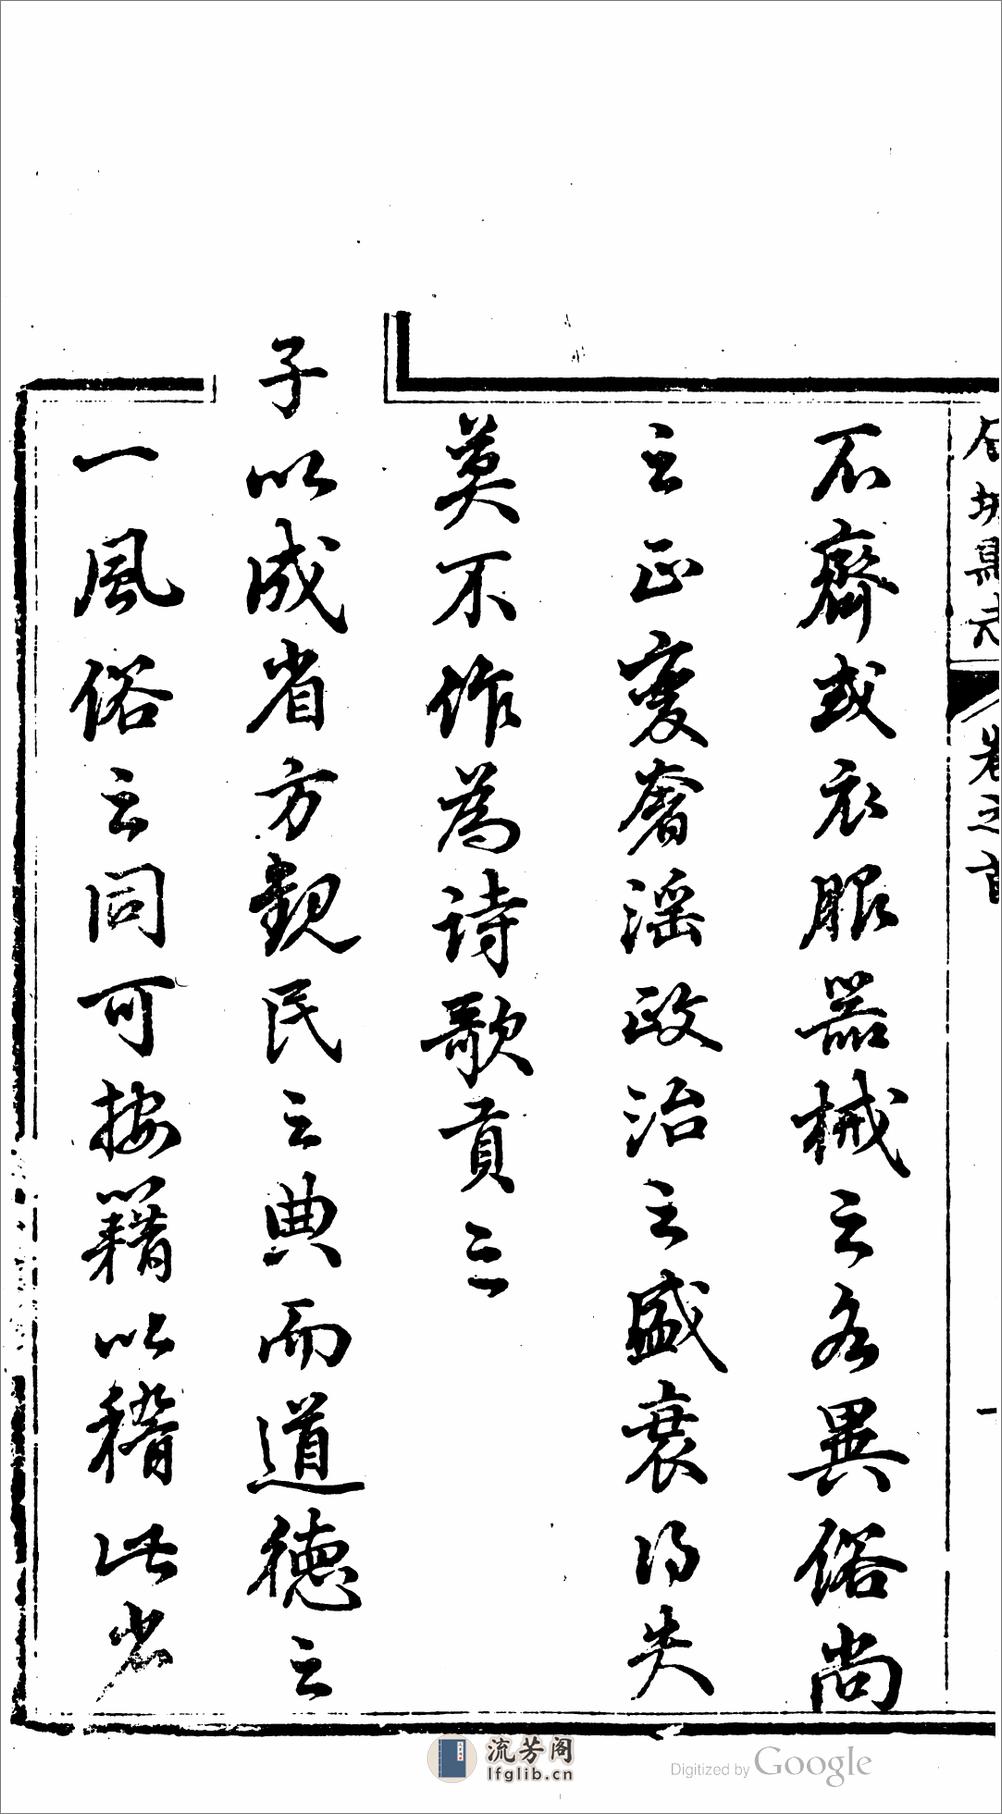 不齊或衣服器械之各異俗尚
之正變奢淫政治之盛衰得失
莫不作為詩歌貢之
子以成省方觀民之典而道德之
一風俗之同可按籍以稽此光
卷之首
一
流芳阁
lfglib.cn
Digitized by Google